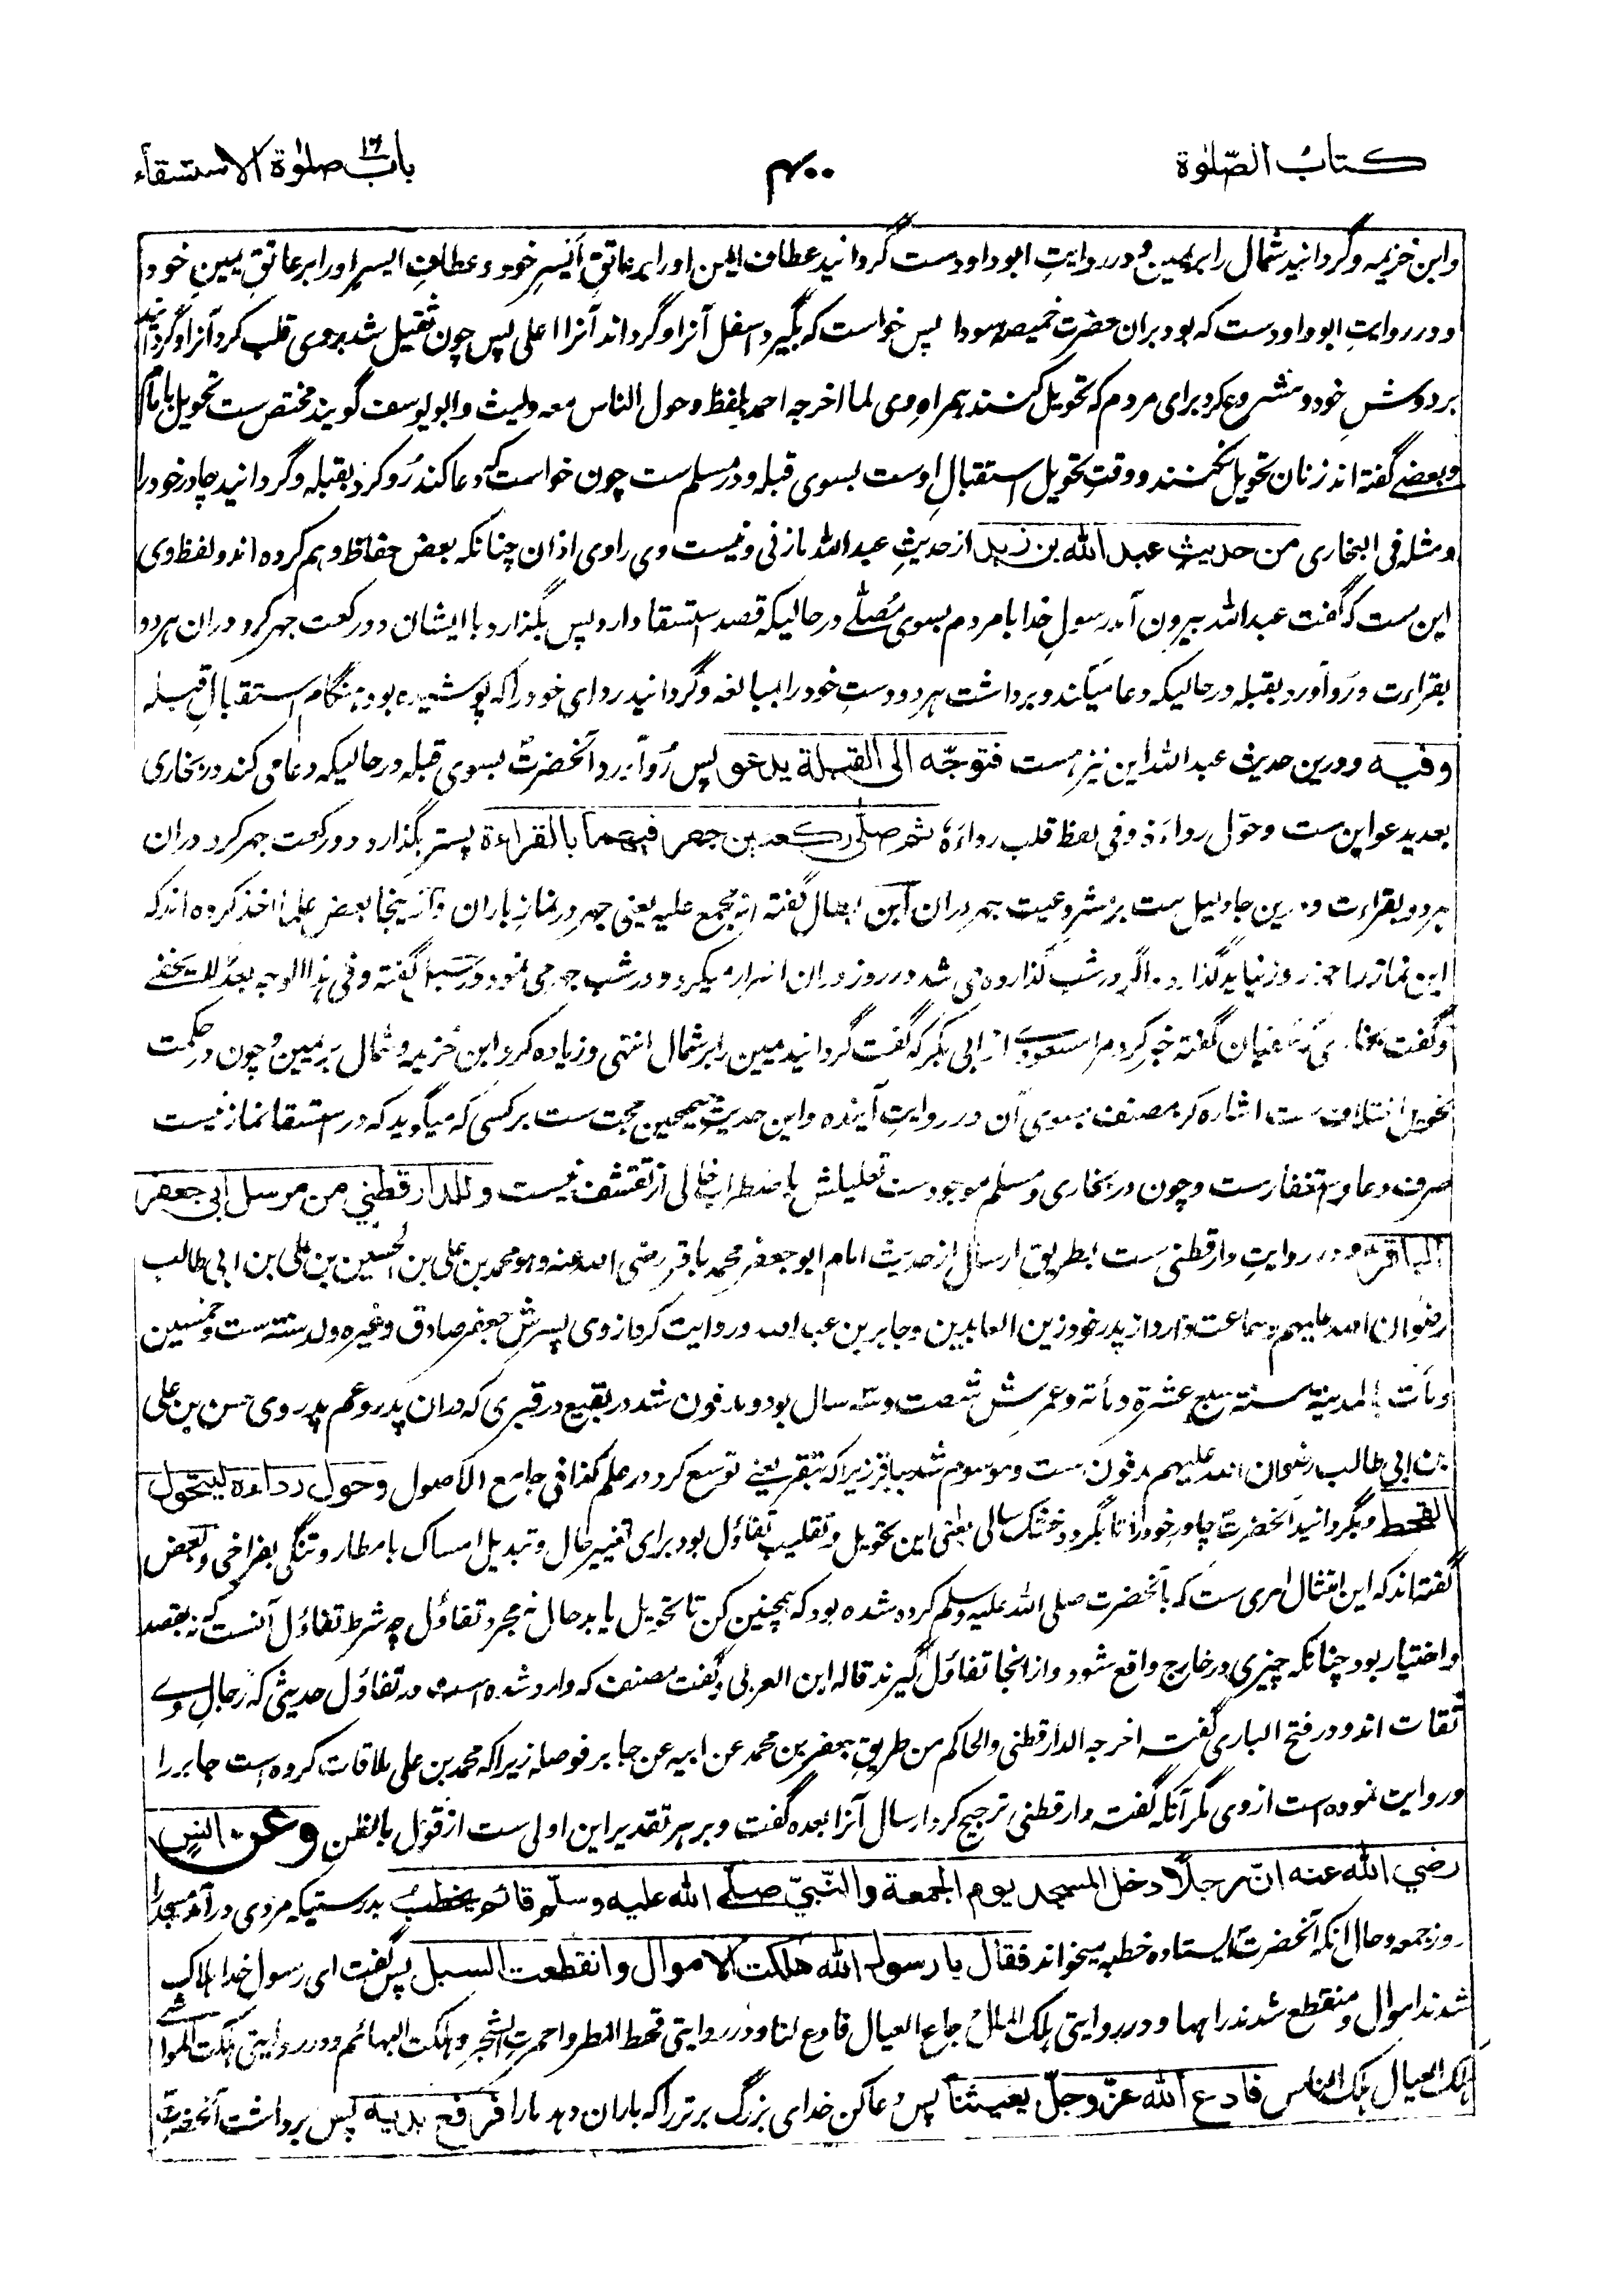 کتاب الصّلوٰة
۴۰۰
باب ۱۶ صلوٰة الاستسقاء
وابن خزیمه و گردانید شمال را بر یمین و در روایتِ ابوداودست گردانید عطاف ایمن او را بر عاتقِ ایسرِ خود و عطافِ ایسرِ او را بر عاتقِ یمینِ خود
و در روایتِ ابوداودست که بود بران حضرت خمیصه سودا پس خواست که بگیرد اسفل آنرا و گرداند آنرا اعلی پس چون ثقیل شد بروی قلب کرد آنرا و گردانید
بر دوشِ خود و مشروع کرد برای مردم که تحویل کنند همراه وی لما اخرجه احمد بلفظ وحول الناس معه ولیث و ابویوسف گویند مختص ست تحویل بامام
و بعضے گفته اند زنان تحویل نکنند و وقتِ تحویل استقبالِ اوست بسوی قبله و در مسلم ست چون خواست که دعا کند رُو کرد بقبله و گردانید چادر خود را
ومثله فی البخاری من حدیث عبد الله بن زید از حدیثِ عبدالله مازنی و نیست وی راوی اذان چنانکه بعض حفاظ وهم کرده اند و لفظ وی
این ست که گفت عبدالله بیرون آمد رسولِ خدا با مردم بسوی مُصلّے در حالیکه قصد استسقا دارد پس بگذارد با ایشان دو رکعت جهر کرد دران هر دو
بقراءت و رَو آورد بقبله در حالیکه دعا میکند و برداشت هر دو دستِ خود را بمبالغه و گردانید ردای خود را که پوشیده بود هنگام استقبالِ قبله
وفیه و درین حدیث عبدالله این نیز هست فتوجّه الی القبلة یدعو پس رُو آورد آنحضرت بسوی قبله در حالیکه دعا می کند در بخاری
بعد یدعو این ست وحوّل رداءه وفی لفظ قلب رداءه ثم صلّی رکعتین جهر فیهما بالقراءة پستر بگذارد دو رکعت جهر کرد دران
هر دو بقراءت و درین جا دلیل ست بر مشروعیت جهر دران ابن بطال گفته انه مجمع علیه یعنی جهر در نمازِ باران و از ینجا بعض علما اخذ کرده اند که
این نماز را جز روز نباید گذارد و اگر در شب گذارده می شد در روز دران اسرار میکرد و در شب جهر می نمود و در سبل گفته وفی هذا الوجه بعدٌ لا یخفے
و گفت بخاری که سفیان گفته خبر کرد مرا مسعودے از ابی بکر که گفت گردانید یمین را بر شمال انتهی و زیاده کرد ابن خزیمه و شمال بر یمین و چون در حکمت
تحویل اختلاف ست اشاره کرد مصنف بسوی آن در روایتِ آینده و این حدیث صحیحین حجت ست بر کسی که میگوید که در استسقا نماز نیست
صرف دعا و استغفارست و چون در بخاری و مسلم موجودست تعلیلش باضطراب خالی از تقشف نیست وللدارقطنی من مرسل ابی جعفر
الباقر و در روایتِ دارقطنی ست بطریقِ ارسال از حدیث امام ابو جعفر محمد باقر رضی الله عنه وهو محمد بن علی بن الحسین بن علی بن ابی طالب
رضوان الله علیهم سماعت دارد از پدر خود زین العابدین و جابر بن عبدالله و روایت کرد از وی پسرش جعفر صادق و غیره ولد سنته ست وخمسین
ومات بالمدینة سنته سبع عشرة ومأته و عمرش شصت و سه سال بود و مدفون شد در بقیع در قبری که دران پدر و عم پدر وی حسن بن علی
بن ابی طالب رضوان الله علیهم مدفون ست و موسوم شد بباقر زیرا که تبقر یعنے توسع کرد در علم کذا فی جامع الاصول وحول رداءه لیتحول
القحط و بگردانید آنحضرت چادرِ خود را تا بگردد خشک سالی یعنی این تحویل و تقلیب تفاؤل بود برای تغییر حال و تبدیل امساک بامطار و تنگی بفراخی و بعض
گفته اند که این امتثال امری ست که بآنحضرت صلی الله علیه وسلم کرده شده بود که همچنین کن تا تحویل یابد حال نه مجرد تفاؤل چه شرط تفاؤل آنست که نه بقصد
و اختیار بود چنانکه چیزی در خارج واقع شود و از انجا تفاؤل گیرند قاله ابن العربی و گفت مصنف که وارد شده است در تفاؤل حدیثی که رجالِ وے
ثقات اند و در فتح الباری گفته اخرجه الدارقطنی والحاکم من طریقِ جعفر بن محمد عن ابیه عن جابر فوصله زیرا که محمد بن علی ملاقات کرده است جابر را
و روایت نموده است از وی مگر آنکه گفت دارقطنی ترجیح کرد ارسال آنرا بعده گفت و بر هر تقدیر این اولی ست از قول بالظن وعن انس
رضی الله عنه انّ رجلاً دخل المسجد یوم الجمعة والنّبیّ صلّے الله علیه وسلّم قائم یخطب بدرستیکه مردی در آمد مسجد را
روز جمعه و حال آنکه آنحضرت ایستاده خطبه میخواند فقال یا رسول الله هلکت الاموال وانقطعت السبل پس گفت ای رسول خدا هلاک
شدند اموال و منقطع شدند راهها و در روایتی هلک المال جاع العیال فادع لنا و در روایتی قحط المطر واحمرت الشجر وهلکت البهائم و در روایتی هلکت المواشے
هلک العیال هلک الناس فادع الله عزّ وجلّ یغیثنا پس دعا کن خدای بزرگ برتر را که باران دهد ما را فرفع یدیه پس برداشت آنحضرت